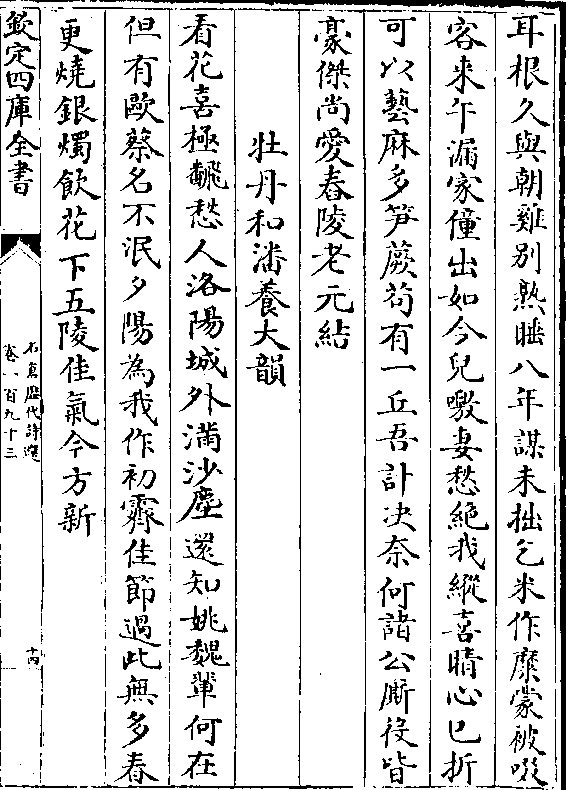 耳根久與朝雞别熟睡八年謀未拙乞米作糜蒙被啜
客來午漏家僮出如今兒嗷妻愁絶我縱喜晴心已折
可以藝麻多笋蕨苟有一丘吾計决奈何諸公厮役皆
豪傑尚愛舂陵老元結
牡丹和潘養大韻
看花喜極翻愁人洛陽城外滿沙塵還知姚魏輩何在
但有歐蔡名不泯夕陽為我作初霽佳節過此無多春
更燒銀燭飲花下五陵佳氣今方新
欽定四庫全書
石倉歴代詩選
卷一百九十三
十四